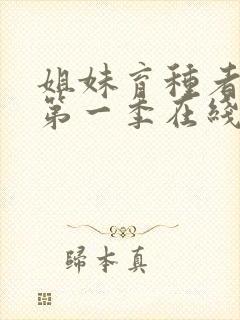 姐妹育種者
第一季在綫
歸本真